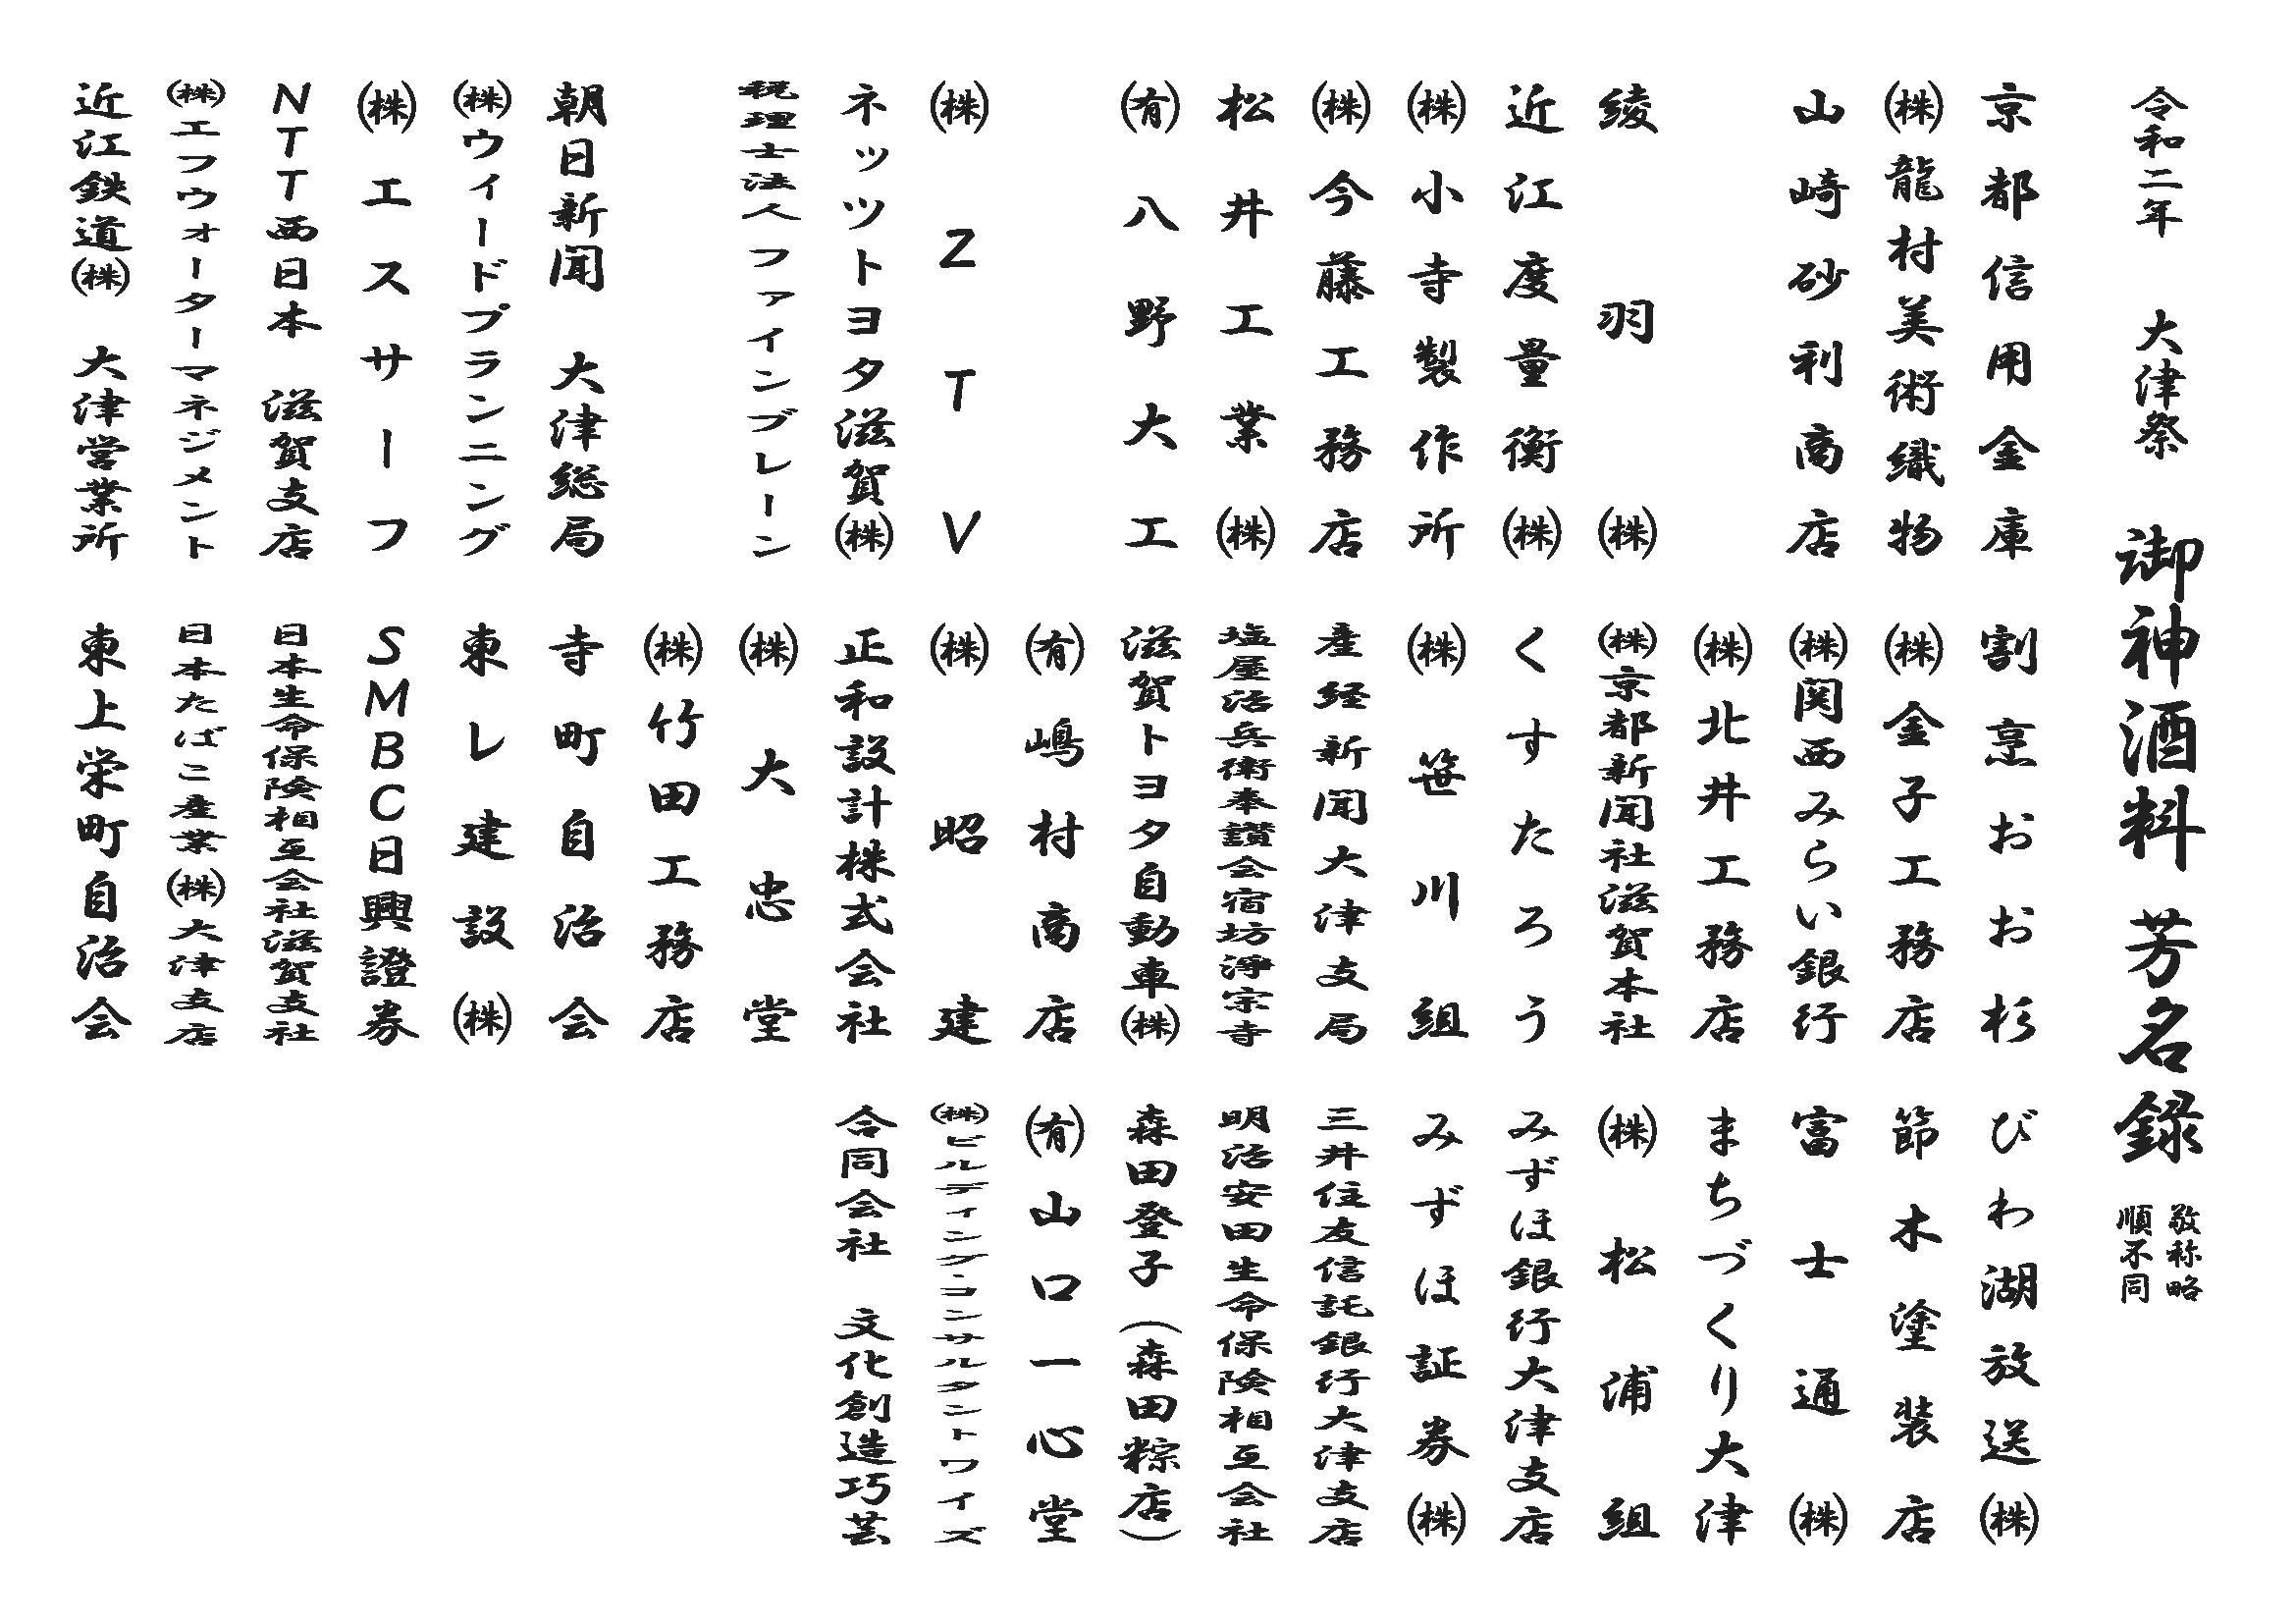 令和二年　大津祭　御神酒料　芳名録
敬称略
順不同
京都信用金庫
㈱龍村美術織物
山崎砂利商店
綾羽㈱
近江度量衡㈱
㈱小寺製作所
㈱今藤工務店
松井工業㈱
㈲八野大工
㈱ZTV
ネッツトヨタ滋賀㈱
税理士法人ファインブレーン
朝日新聞　大津総局
㈱ウィードプランニング
㈱エスサーフ
NTT西日本　滋賀支店
㈱エフウォーターマネジメント
近江鉄道㈱　大津営業所
割烹おお杉
㈱金子工務店
㈱関西みらい銀行
㈱北井工務店
㈱京都新聞社滋賀本社
くすたろう
㈱笹川組
産経新聞大津支局
塩屋治兵衛奉讃会宿坊淨宗寺
滋賀トヨタ自動車㈱
㈲嶋村商店
㈱昭建
正和設計株式会社
㈱大忠堂
㈱竹田工務店
寺町自治会
東レ建設㈱
SMBC日興證券
日本生命保険相互会社滋賀支社
日本たばこ産業㈱大津支店
東上栄町自治会
びわ湖放送㈱
節木塗装店
富士通㈱
まちづくり大津
㈱松浦組
みずほ銀行大津支店
みずほ証券㈱
三井住友信託銀行大津支店
明治安田生命保険相互会社
森田登子（森田粽店）
㈲山口一心堂
㈱ビルディングコンサルタントワイズ
合同会社　文化創造巧芸